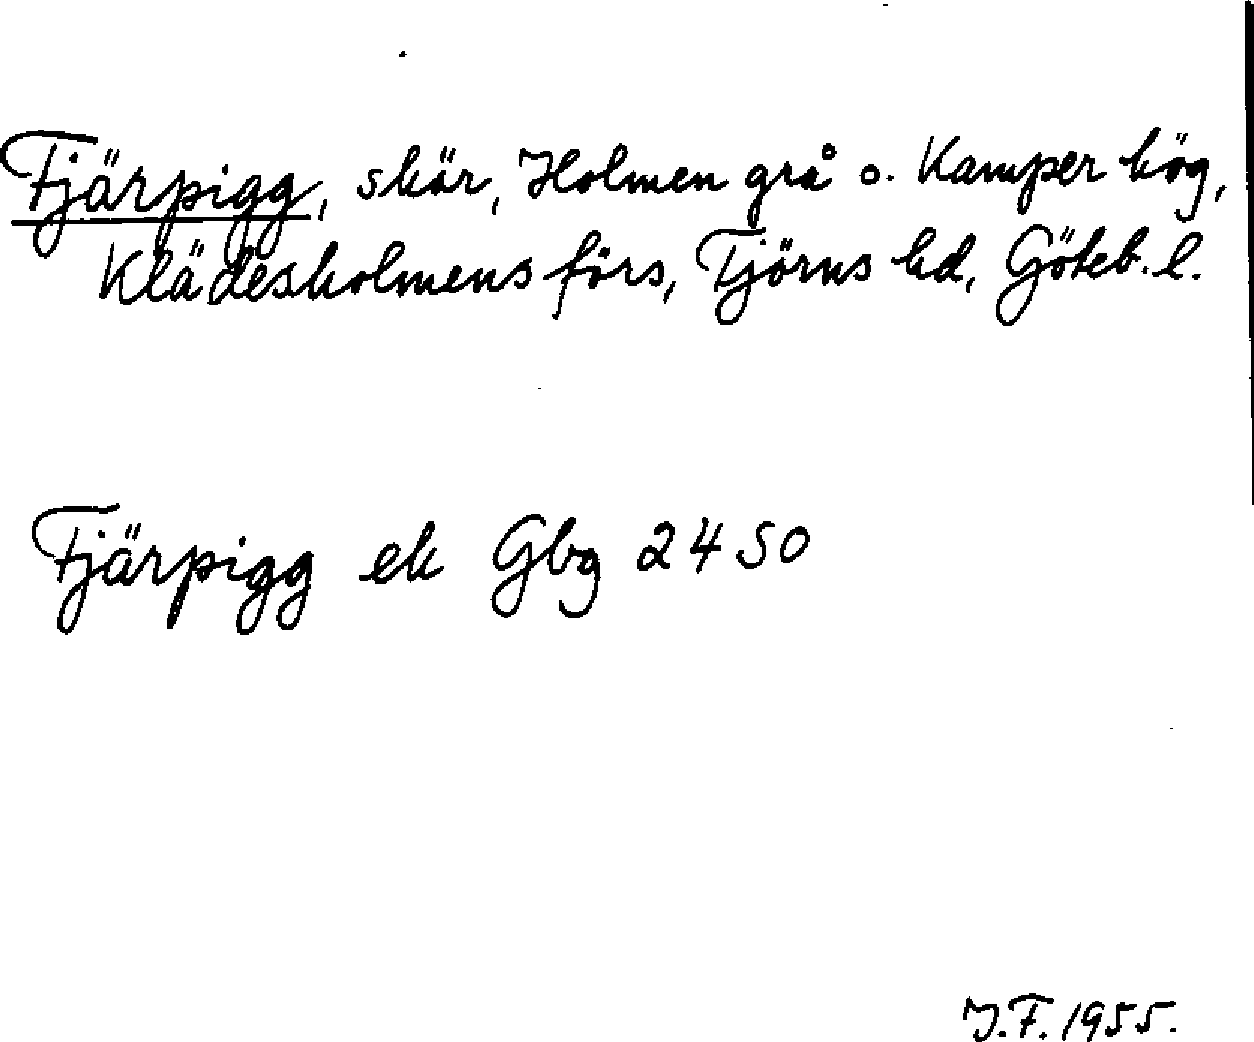 Fjärpigg, skär, Holmen grå o. Kamper hög,
Klädesholmens förs, Tjörns hd, Göteb. l.
Fjärpigg ek Gbg 2450
J.F. 1955.